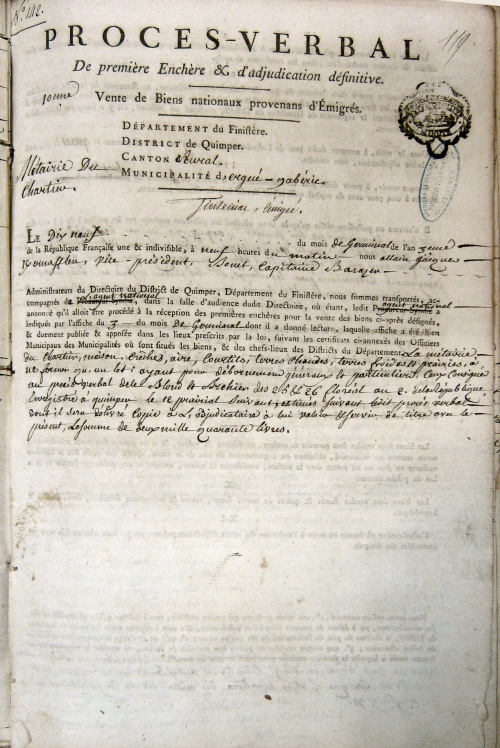 N.º 112.
119
PROCES-VERBAL
De première Enchère & d'adjudication définitive.
Vente de Biens nationaux provenans d'Émigrés.
DÉPARTEMENT du Finiſtère.
DISTRICT de Quimper.
CANTON Rural.
MUNICIPALITÉ d'ergué-gabéric
Métairie Du
Chartier.
émigré.
LE Dix neuf du mois de Germinal de l'an 3eme
de la République Françaiſe une & indiviſible, à neuf heures du matin nous allain guegue
vice président, Bonet, Capitaine
Adminiſtrateurs du Directoire du Diſtrict de Quimper, Département du Finiſtère, nous ſommes tranſportés, ac-
compagnés de l'agent national
agent national
Procureur-Syndic, dans la ſalle d'audience dudit Directoire, où étant, ledit Procureur-Syndic a
annoncé qu'il alloit être procédé à la réception des premières enchères pour la vente des biens ci-après déſignés,
indiqués par l'affiche du 3 du mois de Germinal dont il a donné lecture, laquelle affiche a été bien
& duement publiée & appoſée dans les lieux preſcrits par la loi, ſuivant les certificats ci-annexés des Officiers
Municipaux des Municipalités où ſont ſitués les biens, & des chefs-lieux des Diſtricts du Département. La métairie
du Chartier, maison, crêche, aire, Courtils, terres Chaudes, terres froides & prairies, à
ne former qu'un lot: ayant pour débornement généraux et particuliers, Ceux Consignés
au procès verbal de le Blond & des 25 & 26 floréal an 2. de la République
Enregistré à quimper le 12 prairial Suivant, Suivant ledit procès verbal
dont il sera délivré Copie à L'adjudicataire à lui valoir & servir de titre avec le
présent, La somme de deux mille quarante livres.